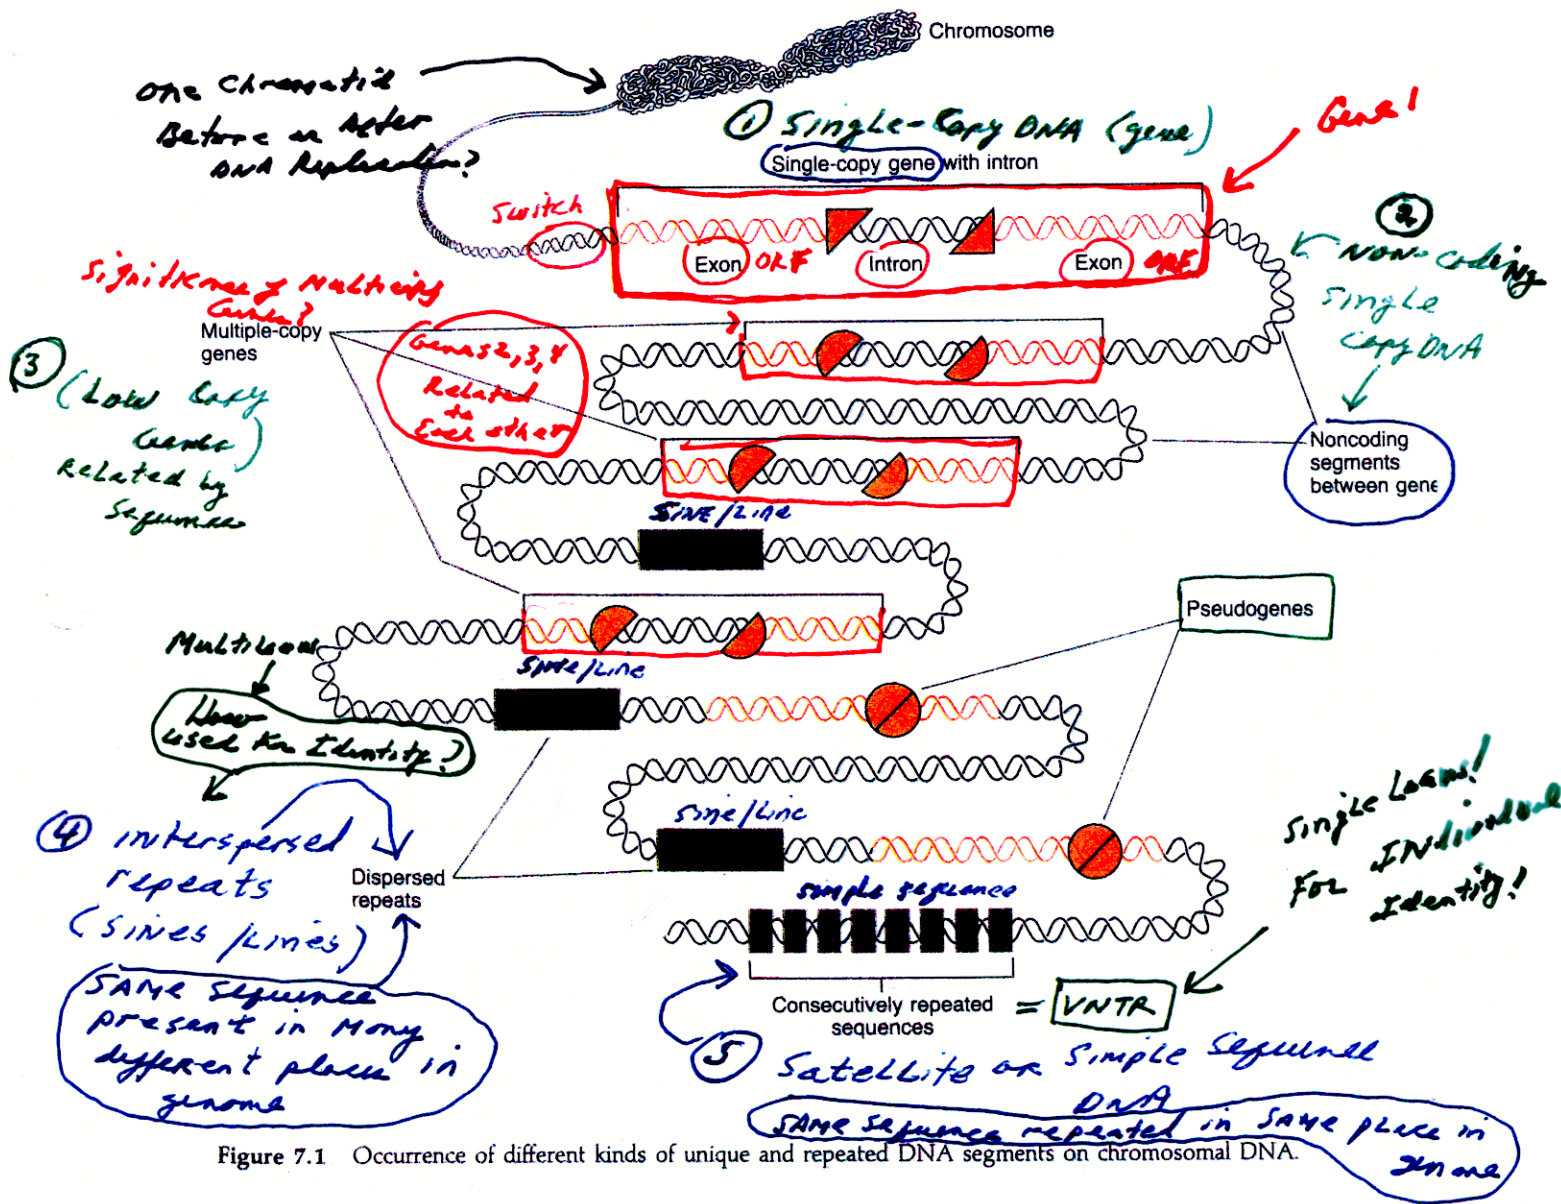 Chromosome
One Chromatid
Before or After
DNA Replication?
① Single-Copy DNA (gene)
Single-copy gene with intron
Gene 1
Switch
Exon ORF
Intron
Exon ORF
② Non-coding
Single
Copy DNA
Significance of Multicopy
Genes?
Multiple-copy
genes
Genes 2, 3, 4
Related
to
Each other
③
(Low Copy
Genes)
Related by
Sequence
Noncoding
segments
between gene
SINE/Line
Pseudogenes
Multilocus
SINE/Line
How
used for Identity?
④ interspersed
repeats
(SINES/LINES)
Dispersed
repeats
Sine/Line
Single Locus!
For Individual
Identity!
simple sequence
SAME sequence
present in Many
different places in
genome
Consecutively repeated
sequences
= VNTR
⑤ Satellite or Simple Sequence
DNA
SAME sequence repeated in SAME place in
genome
Figure 7.1 Occurrence of different kinds of unique and repeated DNA segments on chromosomal DNA.